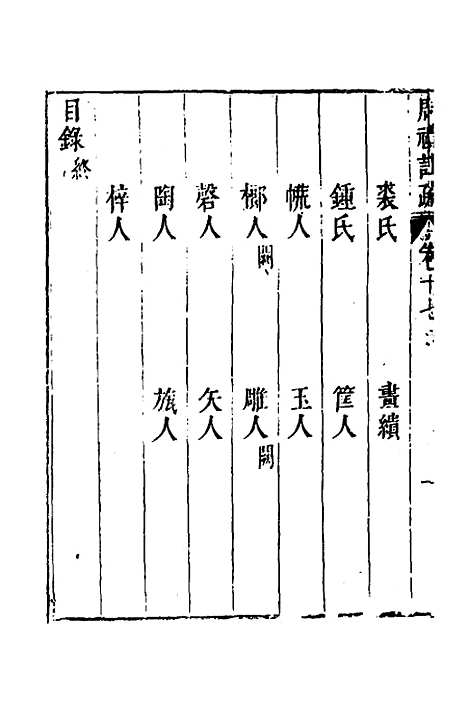 周禮註疏 卷十七
裘氏 畫繢
鍾氏 筐人
㡛人 玉人
楖人闕 雕人闕
磬人 矢人
陶人 旊人
梓人
目錄終
一